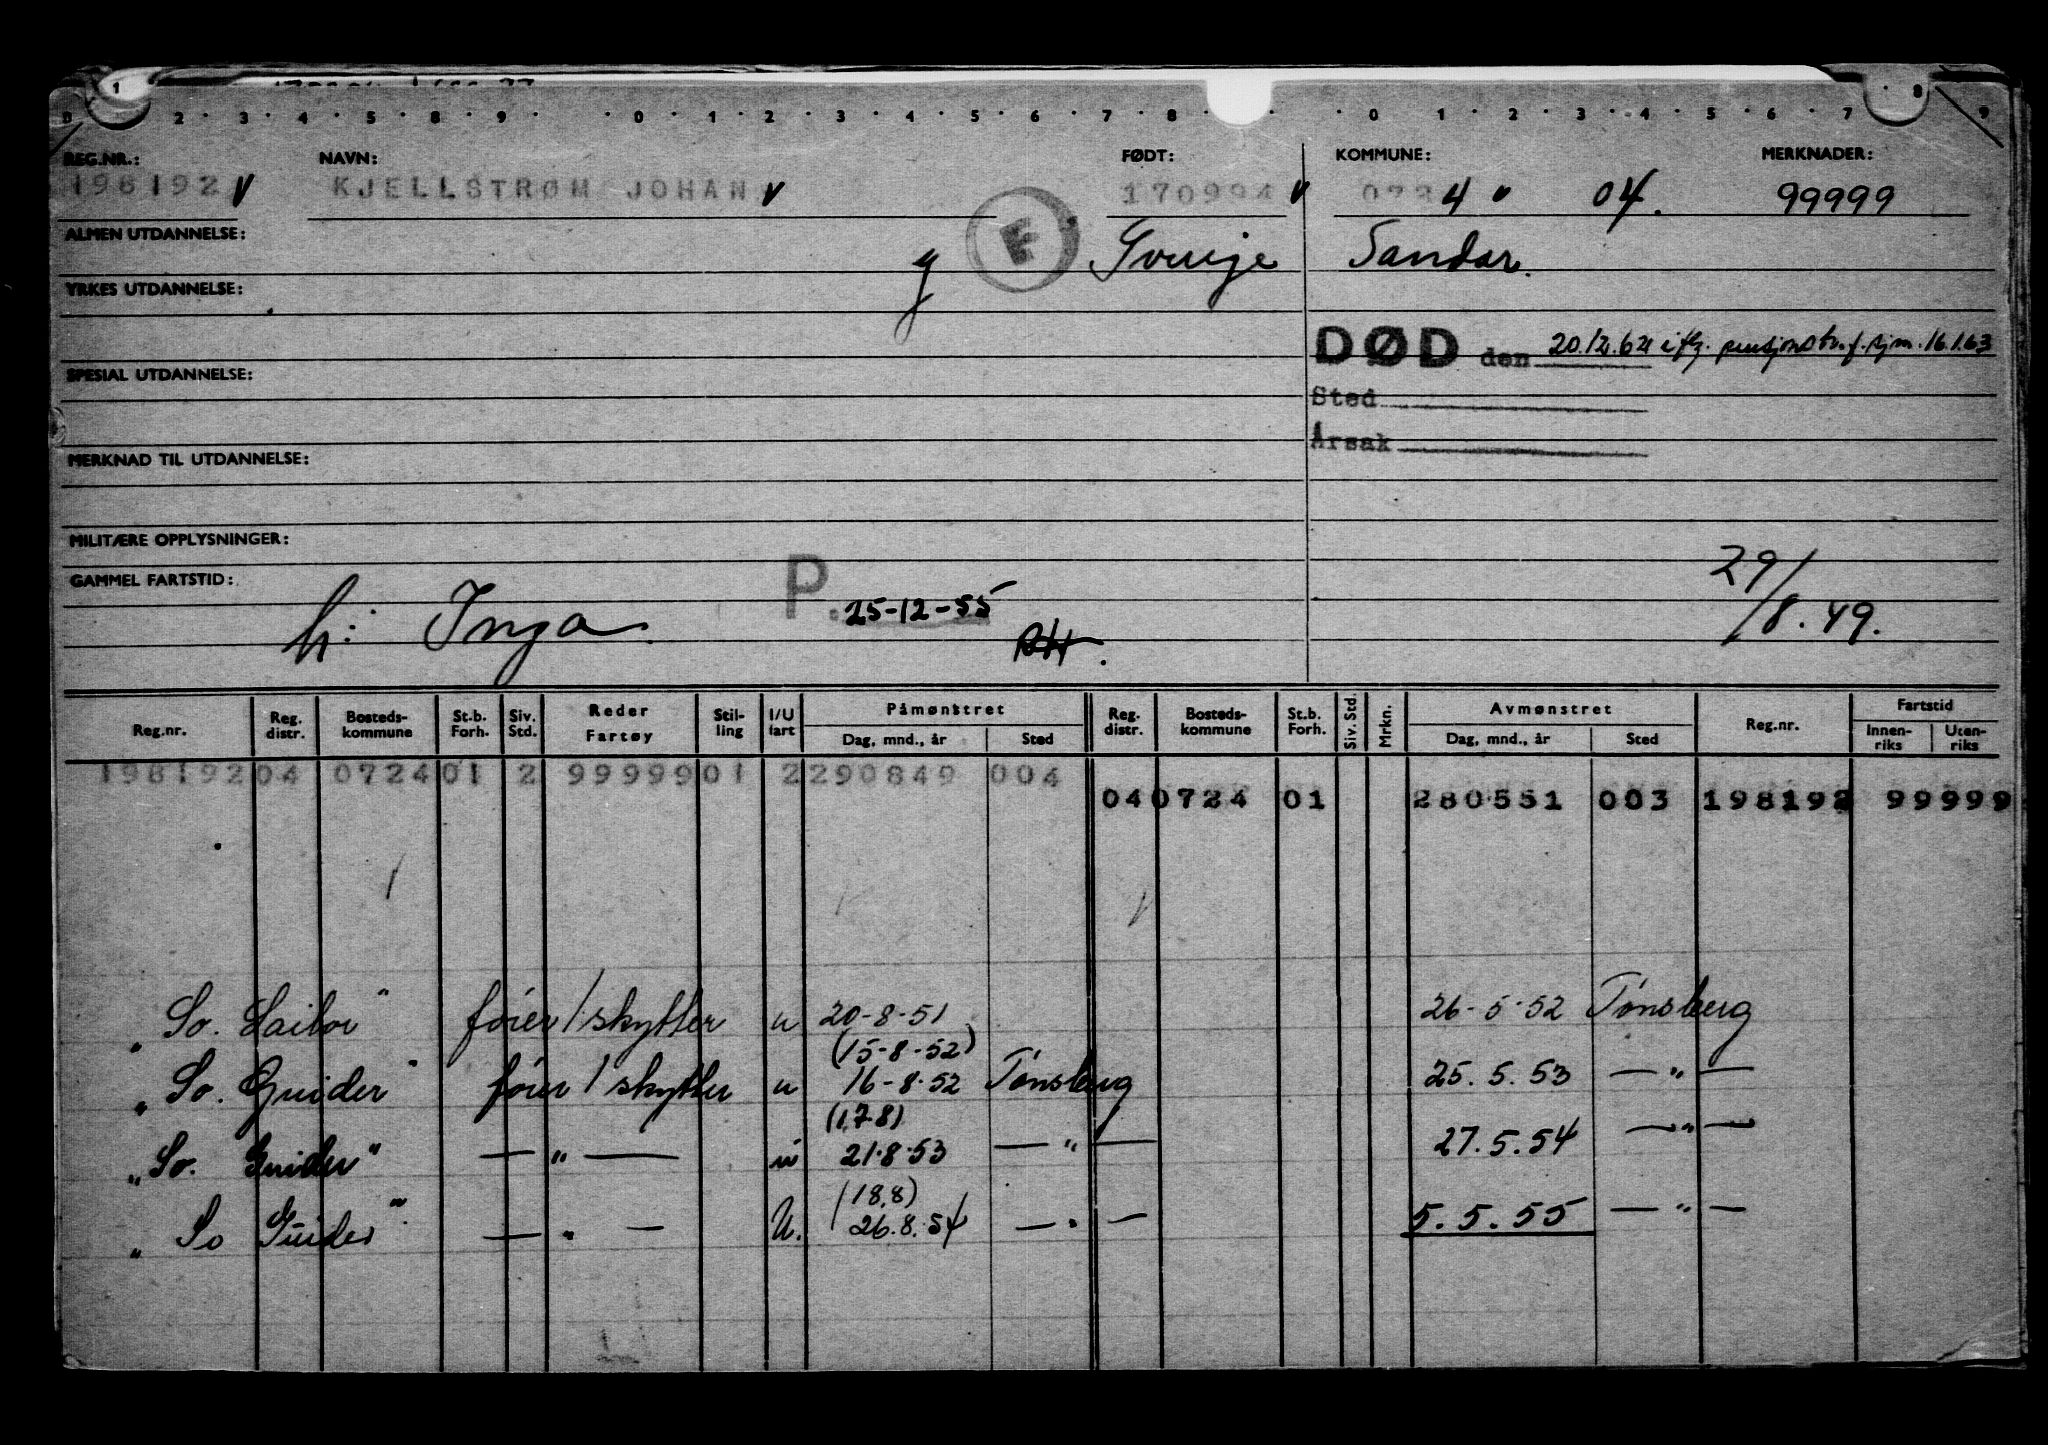 1
0 2 · 3 · 4 · 5 · 8 · 9 · · 0 · 1 · 2 · 3 · 4 · 5 · 6 · 7 · 8 · · · 0 · 1 · 2 · 3 · 4 · 5 · 6 · 7 · 8 9
REG.NR.: NAVN: FØDT: KOMMUNE: MERKNADER:
198192 KJELLSTRØM JOHAN 170994 0724 04. 99999
ALMEN UTDANNELSE: g F Sverige Sandar.
YRKES UTDANNELSE:
DØD den 20.12.62 iflg. pensjonstr. f. sjm. 16.1.63
SPESIAL UTDANNELSE:
Sted
Årsak
MERKNAD TIL UTDANNELSE:
MILITÆRE OPPLYSNINGER:
GAMMEL FARTSTID: P. 25-12-55 29/8.49.
h: Inga
Reg.nr. Reg. distr. Bosteds-kommune St.b. Forh. Siv. Std. Reder Fartøy Stil-ling I/U fart Påmønstret Dag, mnd., år Sted Reg. distr. Bosteds-kommune St.b. Forh. Siv. Std. Mrkn. Avmønstret Dag, mnd., år Sted Reg.nr. Fartstid Innen-riks Uten-riks
198192 04 0724 01 2 99999 01 2 290849 004
04 0724 01 280551 003 198192 99999
„So. Sailor" fóier / skytter u 20-8-51 26-5-52 Tønsberg
(15-8-52)
„So. Guider" fóier / skytter u 16-8-52 Tønsberg 25.5.53 — " —
(17-8)
„So. Guider" — " — u 21.8.53 — " — 27.5.54 — " —
(18.8)
„So Guider" — " — U. 26.8.54 — " — 5.5.55 — " —